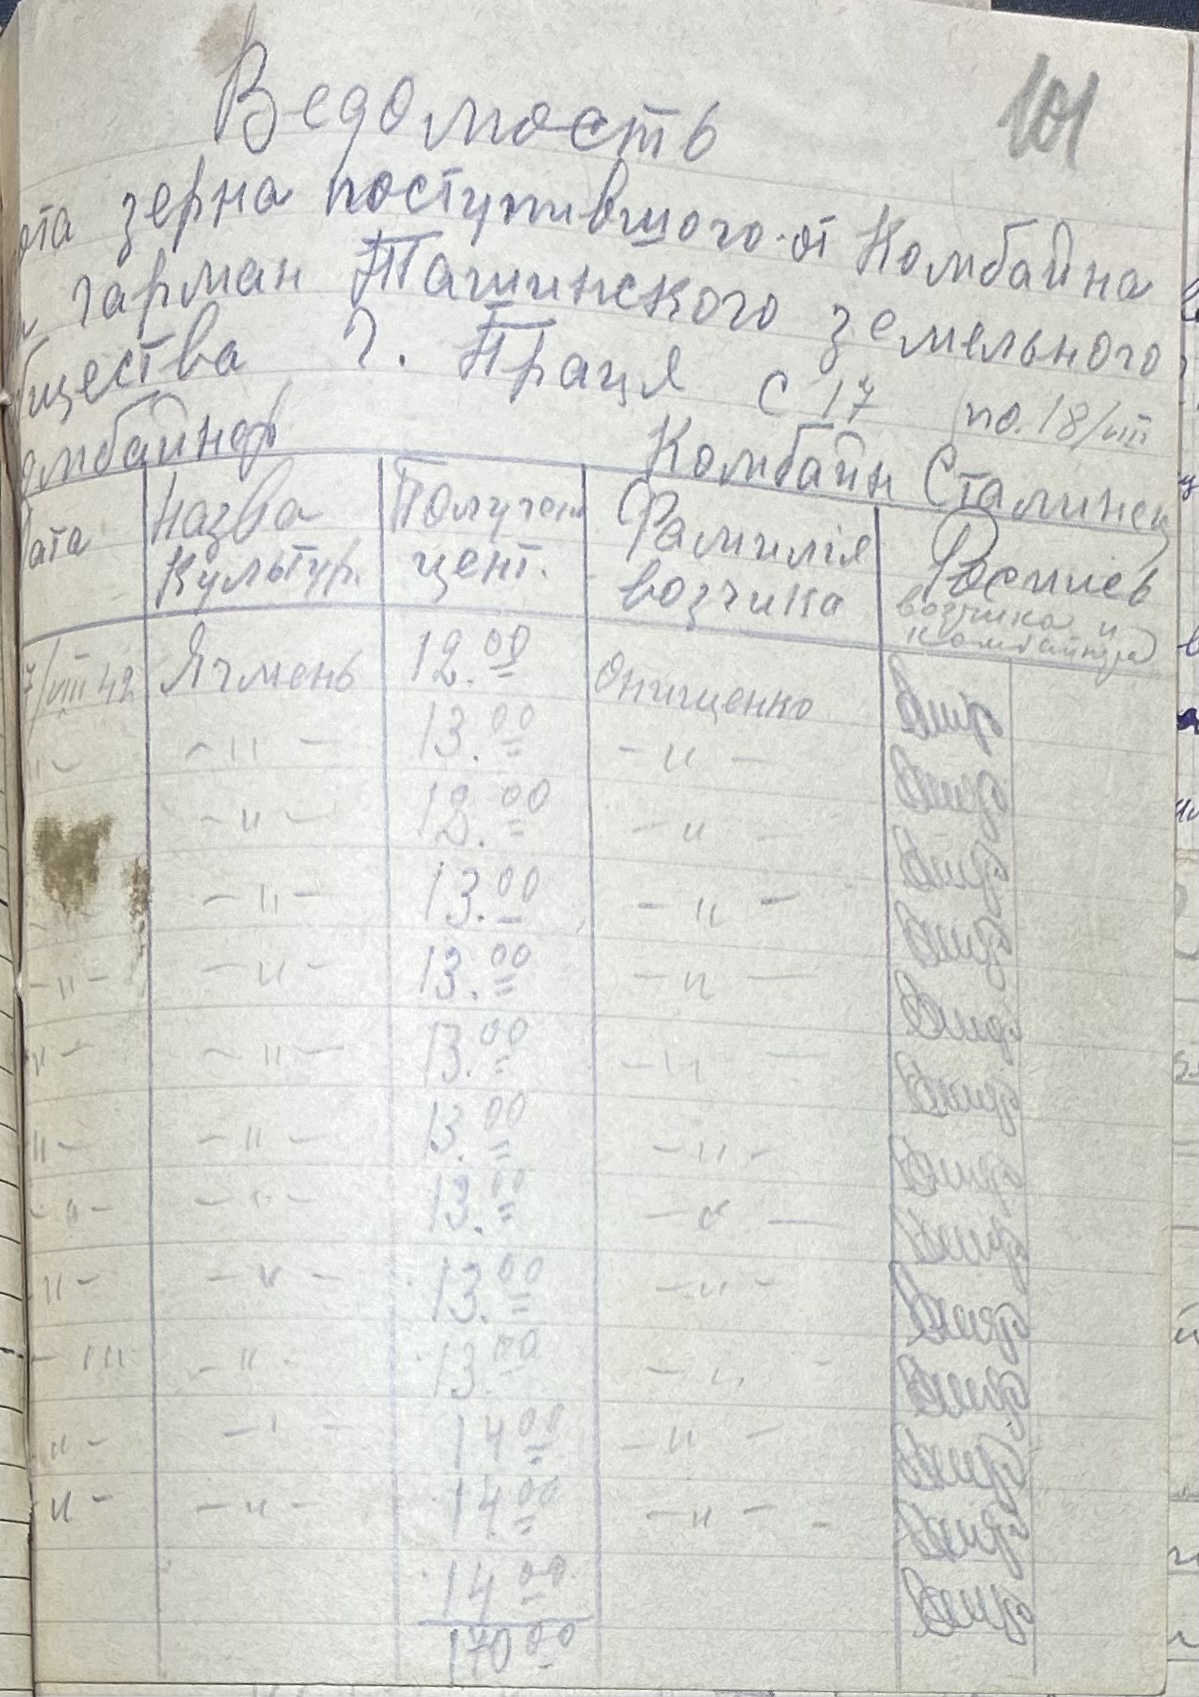 101
Ведомость
ота зерна поступившого от Комбайна
гарман Ташинского земельного
бщества г. Праця с 17 по. 18/VIII
омбайнер Комбайн Сталинец
Дата Назва Культур. Получен цент. Фамилія возчика Роспись возчика и комбайнера
7/VIII 42 Ячмень 12.00 Онищенко
-〃- -〃- 13.00 -〃-
-〃- 12.00 -〃-
-〃- 13.00 -〃-
-〃- -〃- 13.00 -〃-
-〃- -〃- 13.00 -〃-
-〃- -〃- 13.00 -〃-
-〃- -〃- 13.00 -〃-
-〃- -〃- 13.00 -〃-
-〃- -〃- 13.00 -〃-
-〃- -〃- 14.00 -〃-
-〃- -〃- 14.00 -〃-
14.00
170.00